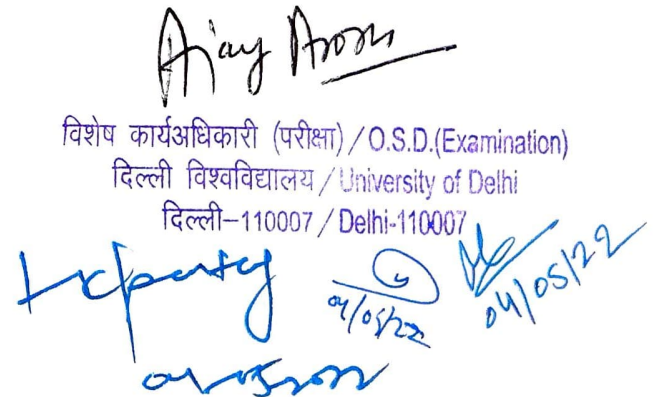 Ajay Arora
विशेष कार्यअधिकारी (परीक्षा) / O.S.D.(Examination)
दिल्ली विश्वविद्यालय / University of Delhi
दिल्ली–110007 / Delhi-110007
04/05/22
04/05/22